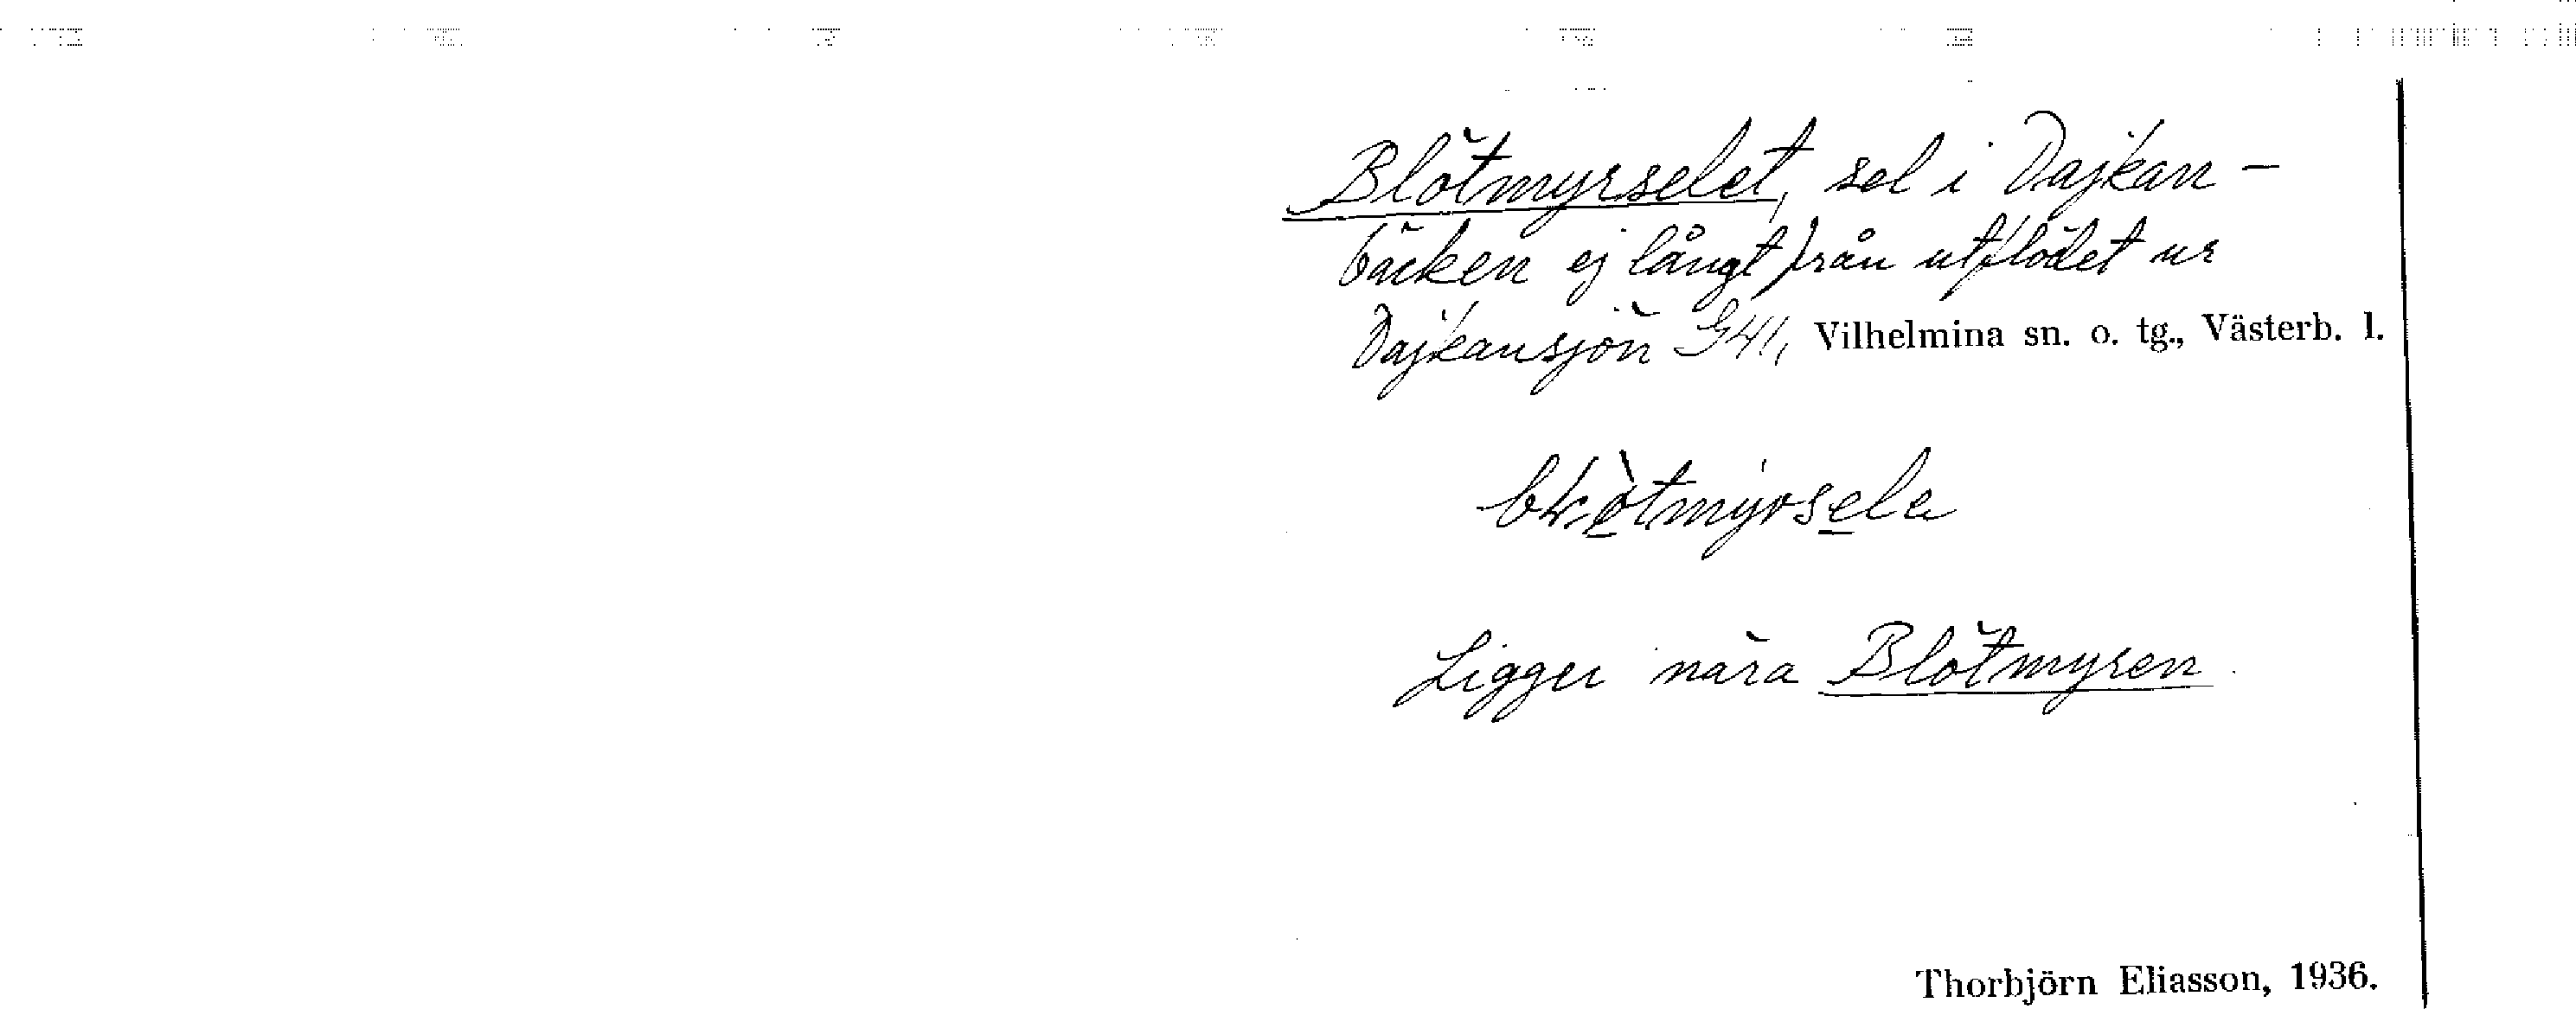 Blötmyrselet, sel i Dajkan-
bäcken ej långt från utflödet ur
Dajkansjön G41, Vilhelmina sn. o. tg., Västerb. l.
Ligger nära Blötmyren.
Thorbjörn Eliasson, 1936.